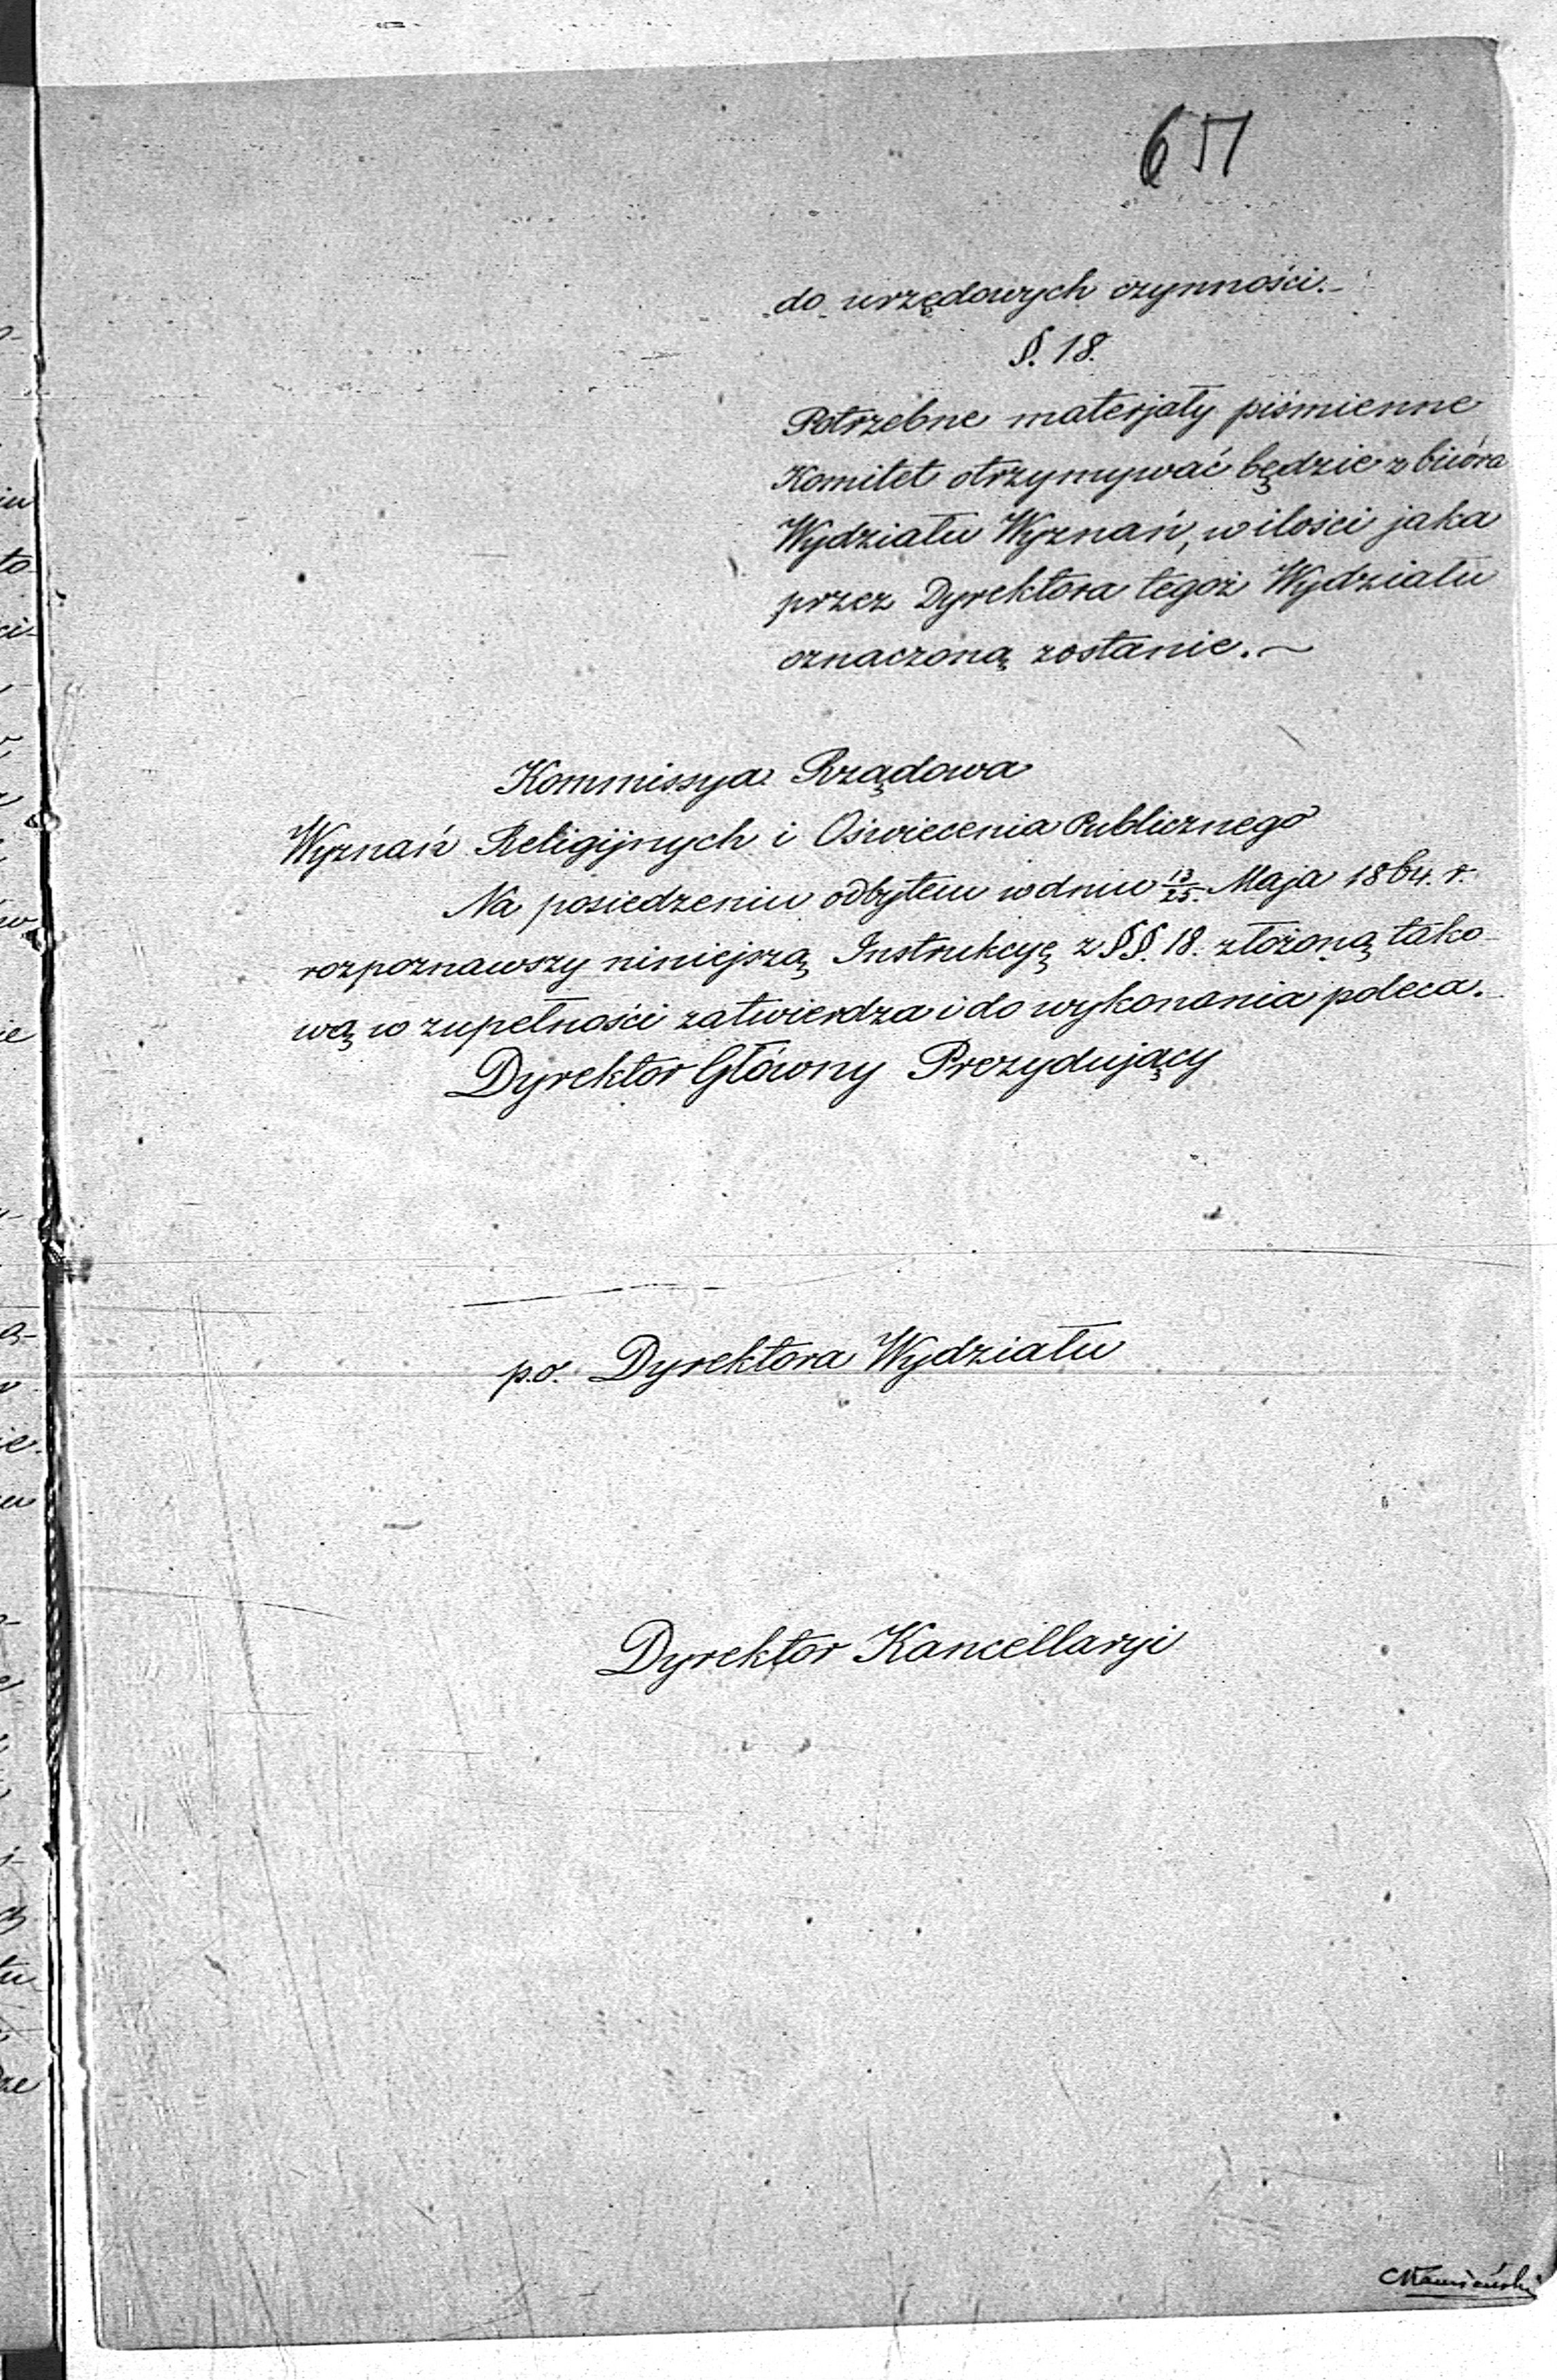 67
do urzędowych czynności.-
§. 18.
Potrzebne materjały piśmienne
Komitet otrzymywać będzie z biióra
Wydziału Wyznań, w ilości jaka
przez Dyrektora tegoż Wydziału
oznaczoną zostanie.~
Kommissya Rządowa
Wyznań Religijnych i Oświecenia Publicznego
Na posiedzeniu odbytem w dniu 13/25. Maja 1864. r.
rozpoznawszy niniejszą Instrukcyę z §§. 18. złożoną tako-
wą w zupełności zatwierdza i do wykonania poleca.-
Dyrektor Główny Prezydujący
p.o. Dyrektora Wydziału
Dyrektor Kancellaryi